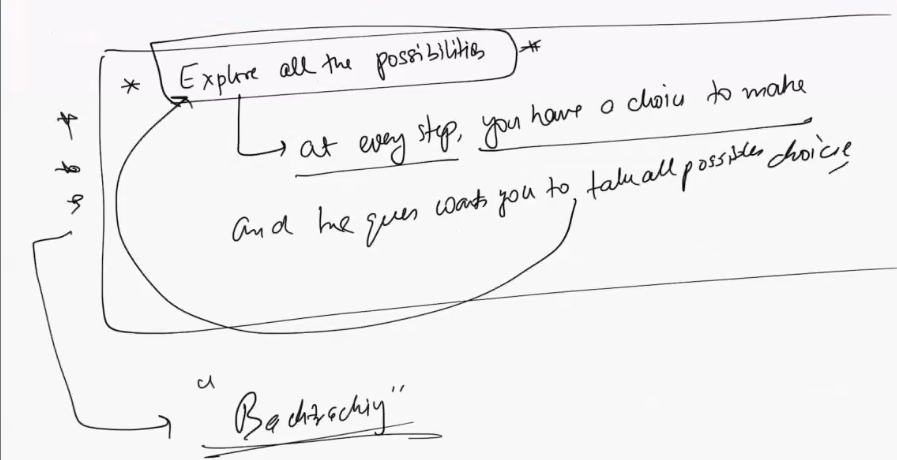 * Explore all the possibilities *
at every step, you have a choice to make
and the ques wants you to take all possible choices
"Backtracking"